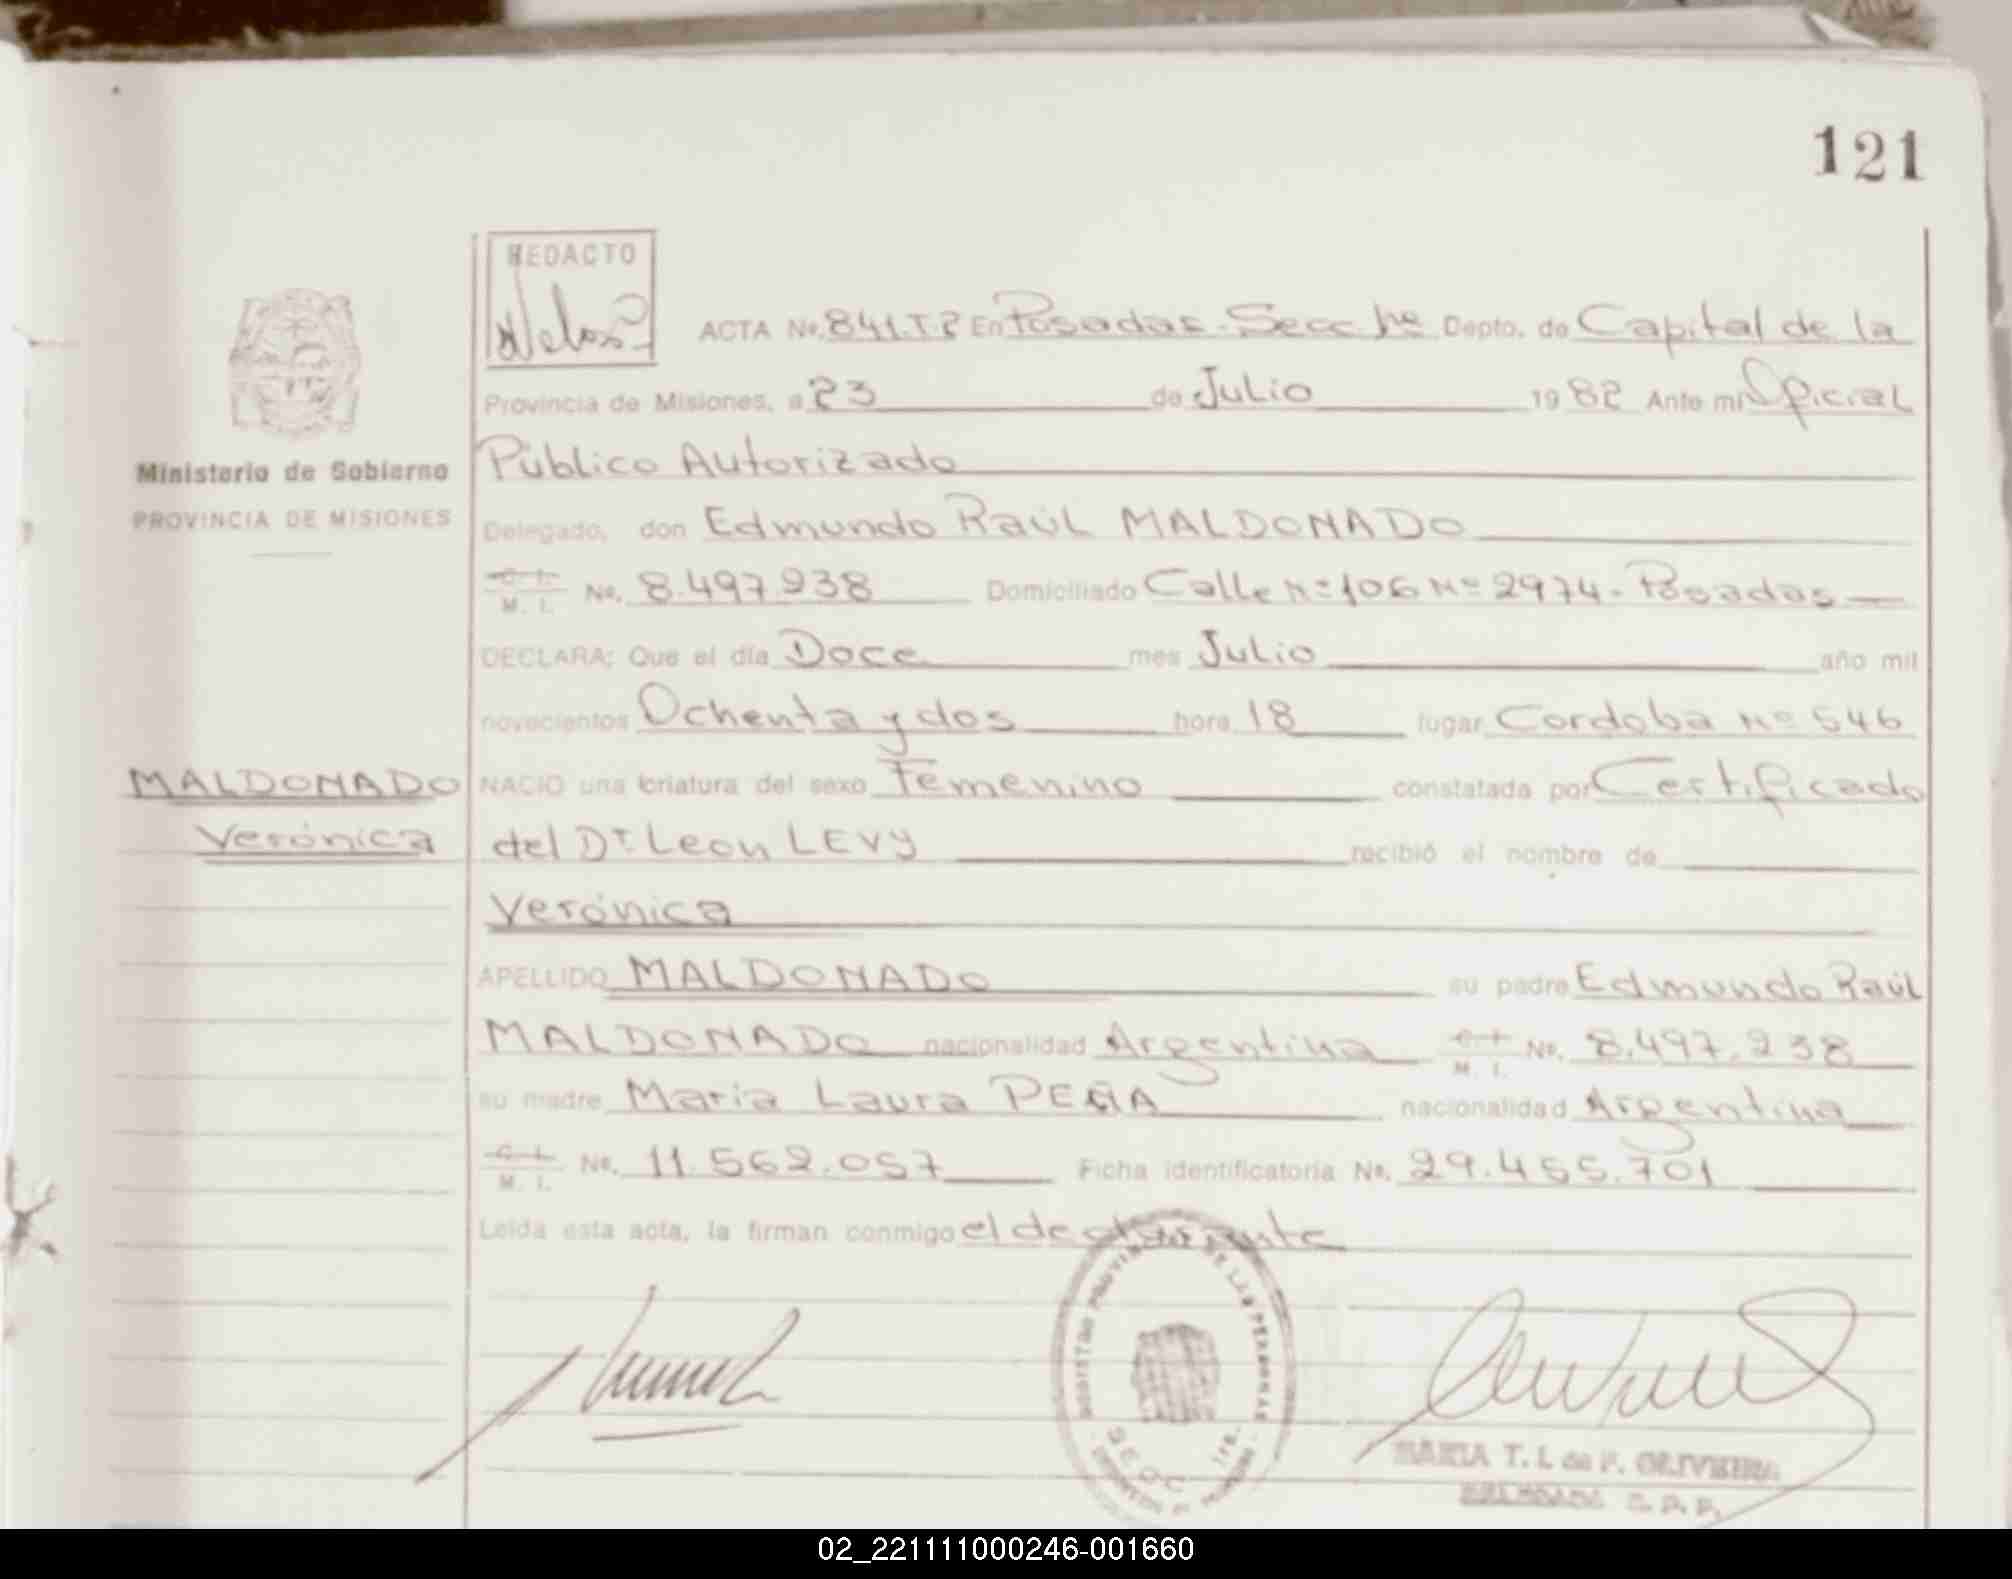 121
REDACTO
ACTA No. 841.T.2 En Posadas - Secc 1ra Depto. de Capital de la
Provincia de Misiones, a 23 de Julio 1982 Ante mi Oficial
Ministerio de Gobierno
PROVINCIA DE MISIONES
Público Autorizado
Delegado, don Edmundo Raúl MALDONADO
C. I. M. I. No. 8.497.238 Domiciliado Calle Nº 106 Nº 2974 - Posadas
DECLARA: Que el día Doce mes Julio año mil
novecientos Ochenta y dos hora 18 lugar Cordoba Nº 546
MALDONADO
Verónica
NACIO una criatura del sexo Femenino constatada por Certificado
del Dr. Leon LEVY recibió el nombre de
Verónica
APELLIDO MALDONADO su padre Edmundo Raúl
MALDONADO nacionalidad Argentina C. I. M. I. No. 8.497.238
su madre Maria Laura PEÑA nacionalidad Argentina
C. I. M. I. No. 11.562.057 Ficha identificatoria No. 29.455.701
Leída esta acta, la firman conmigo el declarante
REGISTRO PROVINCIAL DE LAS PERSONAS
SECC 1ra.
MARIA T. L. de F. OLIVEIRA
02_221111000246-001660